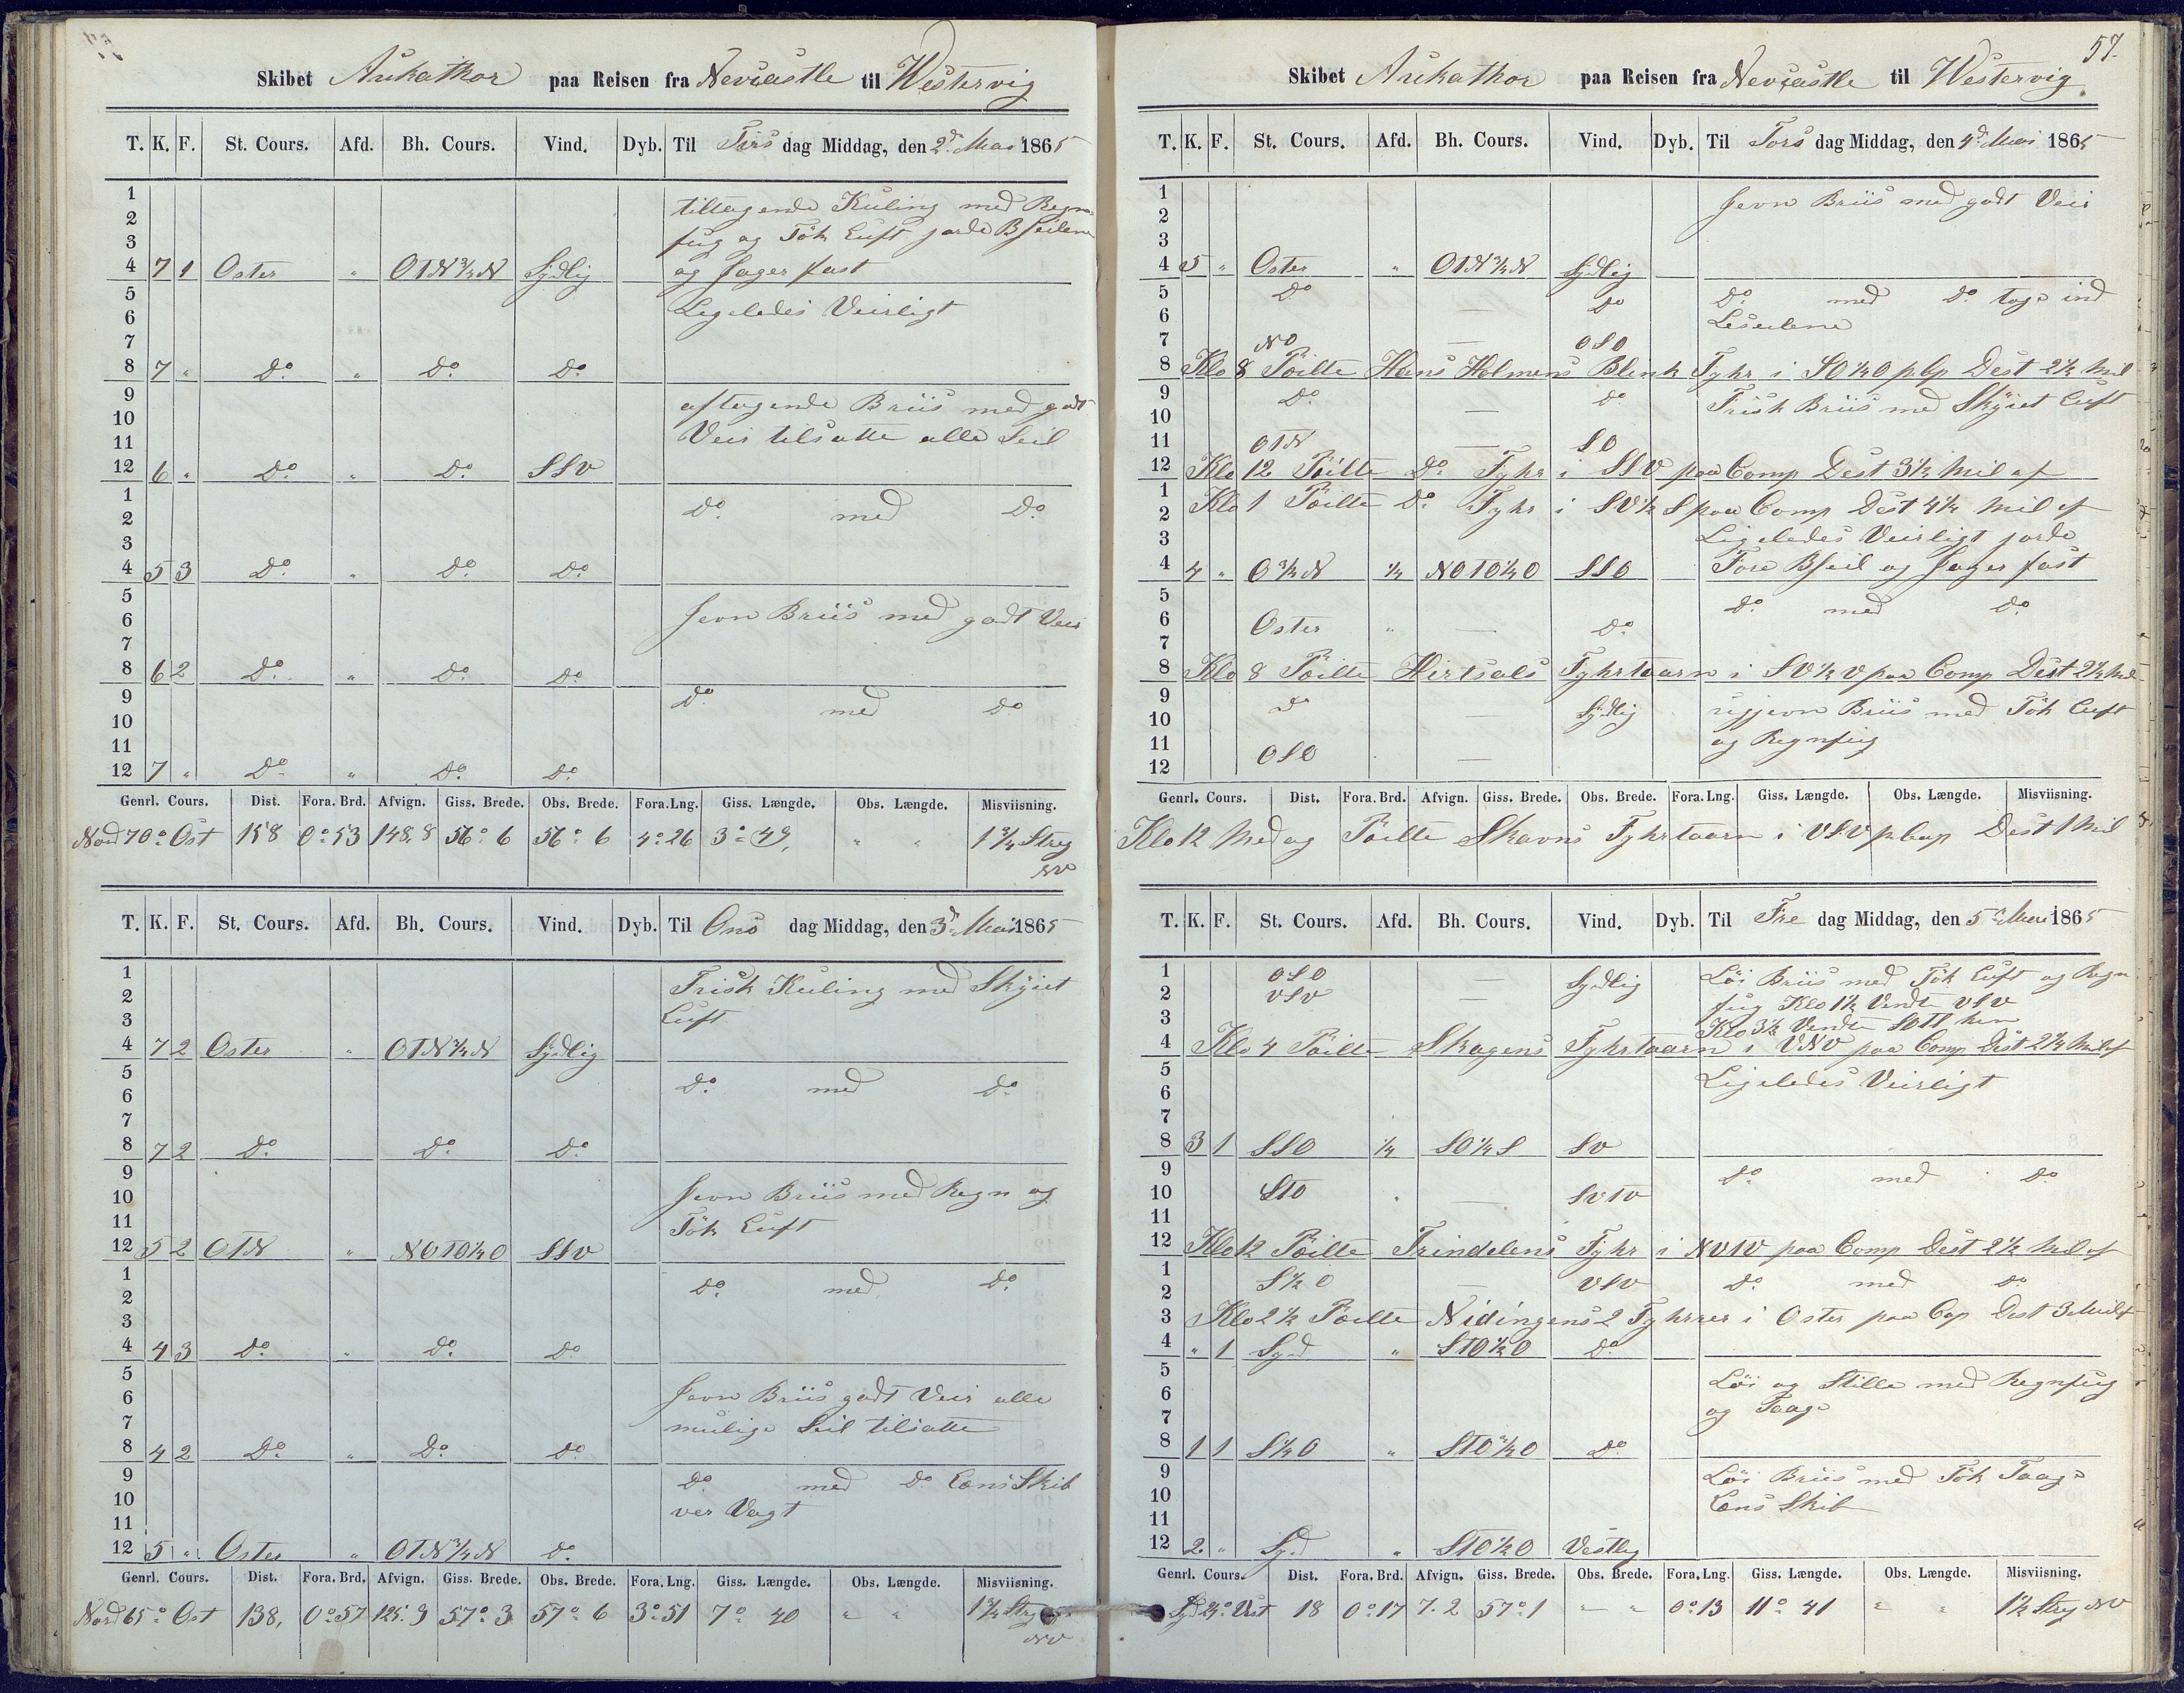 Skibet Aukathor paa Reisen fra Newcastle til Westervig
T. K. F. St. Cours. Afd. Bh. Cours. Vind. Dyb. Til Tirsdag Middag, den 2d. Mai 1865
1 tiltagende Kuling med Regn-
2 fug og Tök Luft jorde B Seilene
3
4 7 1 Oster " OTN 3/4 N Sÿdlig og Jager fast
5 Ligeledes Veirligt
6
7
8 7 " Do " Do Do
9 aftagende Briis med godt
10 Veir tilsatte alle Seil
11
12 6 " Do " Do SSV
1 Do med Do
2
3
4 5 3 Do " Do Do
5 Jevn Briis med godt Veir
6
7
8 6 2 Do " Do Do
9 Do med Do
10
11
12 7 " Do " Do Do
Genrl. Cours. Dist. Fora. Brd. Afvign. Giss. Brede. Obs. Brede. Fora. Lng. Giss. Længde. Obs. Længde. Misviisning.
Nord 70° Ost 158 0° 53 148,8 56° 6 56° 6 4° 26 3° 49, " " 1 3/4 Streg
NV
T. K. F. St. Cours. Afd. Bh. Cours. Vind. Dyb. Til Onsdag Middag, den 3d. Mai 1865
1 Frisk Kuling med Skÿiet
2 Luft
3
4 7 2 Oster " OTN 3/4 N Sÿdlig
5 Do med Do
6
7
8 7 2 Do Do Do
9 Jevn Briis med Regn og
10 Tök Luft
11
12 5 2 OTN " NOTO 1/4 O SSV
1 Do med Do
2
3
4 4 3 Do " Do Do
5 Jevn Briis godt Veir alle
6 mulige Seil tilsatte
7
8 4 2 Do " Do Do
9 Do med Do Læns Skib
10 ver Vagt
11
12 5 " Oster " OTN 3/4 N Do
Genrl. Cours. Dist. Fora. Brd. Afvign. Giss. Brede. Obs. Brede. Fora. Lng. Giss. Længde. Obs. Længde. Misviisning.
Nord 65° Ost 138, 0° 57 125.9 57° 3 57° 6 3° 51 7° 40 " " 1 3/4 Streg
NV
57.
Skibet Aukathor paa Reisen fra Newcastle til Westervig.
T. K. F. St. Cours. Afd. Bh. Cours. Vind. Dyb. Til Torsdag Middag, den 4d. Mai 1865
1 Jevn Briis med godt Veir
2
3
4 5 " Oster " OTN 3/4 N Sÿdlig
5 Do — Do Do med Do toge ind
6 Leseilene
7 NO — OSO
8 Klo 8 Peilte Hans Holmens Blink Fyhr i SO 1/4 O p Cp Dist 2 1/2 Mil
9 Do — Do Frisk Briis med Skÿiet Luft
10
11 OTN — SO
12 Klo 12 Peilte Do Fyhr i SSV paa Comp Dist 3 1/2 Mil af
1 Klo 1 Peilte Do Fyhr i SV 1/2 S paa Comp Dist 4 1/2 Mil af
2
3 Ligeledes Veirligt jorde
4 4 " O 3/4 N 1/4 NOTO 1/4 O SSO Fore B Seil og Jager fast
5 Do med Do
6 Oster " — Do
7
8 Klo 8 Peilte Hirtsals Fyhrtaarn i SV 1/2 V paa Comp Dist 2 1/2 Mil
9 Do — Sÿdlig ujevn Briis med Tök Luft
10
11 OSO — og Regnfug
12
Genrl. Cours. Dist. Fora. Brd. Afvign. Giss. Brede. Obs. Brede. Fora. Lng. Giss. Længde. Obs. Længde. Misviisning.
Klo 12 Medag Peilte Skavns Fyhrtaarn i VSV p Cop Dist 1 Mil
T. K. F. St. Cours. Afd. Bh. Cours. Vind. Dyb. Til Fredag Middag, den 5d. Mai 1865
1 OSO — Sydlig Löi Briis med Tök Luft og Regn
2 VSV — fug Klo 1 1/2 Vendte VSV
3 Klo 3 1/2 Vendte
4 Klo 4 Peilte Skagens Fyhrtaarn i VNV paa Comp Dist 2 1/4 Mil af
5 Ligeledes Veirligt
6
7
8 3 1 SSO 1/4 SO 1/4 S SV
9 Do med Do
10 STO — SVTV
11
12 Klo 12 Peilte Trindelens Fyhr i NVTV paa Comp Dist 2 1/2 Mil af
1 S 1/2 O — VSV Do med Do
2
3 Klo 2 1/2 Peilte Nidingens 2 Fyhrrer i Oster paa Cop Dist 3 Mil af
4 " 1 Syd " STO 1/2 O Do
5 Löi og Stille med Regnfug
6
7 og Taage
8 1 1 S 1/4 O " STO 3/4 O Do
9 Löi Briis med Tök Taage
10 Læns Skib
11
12 2 " Syd " STO 1/2 O Vestlig
Genrl. Cours. Dist. Fora. Brd. Afvign. Giss. Brede. Obs. Brede. Fora. Lng. Giss. Længde. Obs. Længde. Misviisning.
Syd 24° Vest 18 0° 17 7.2 57° 1 " " 0° 13 11° 41 " " 1 1/2 Streg NV